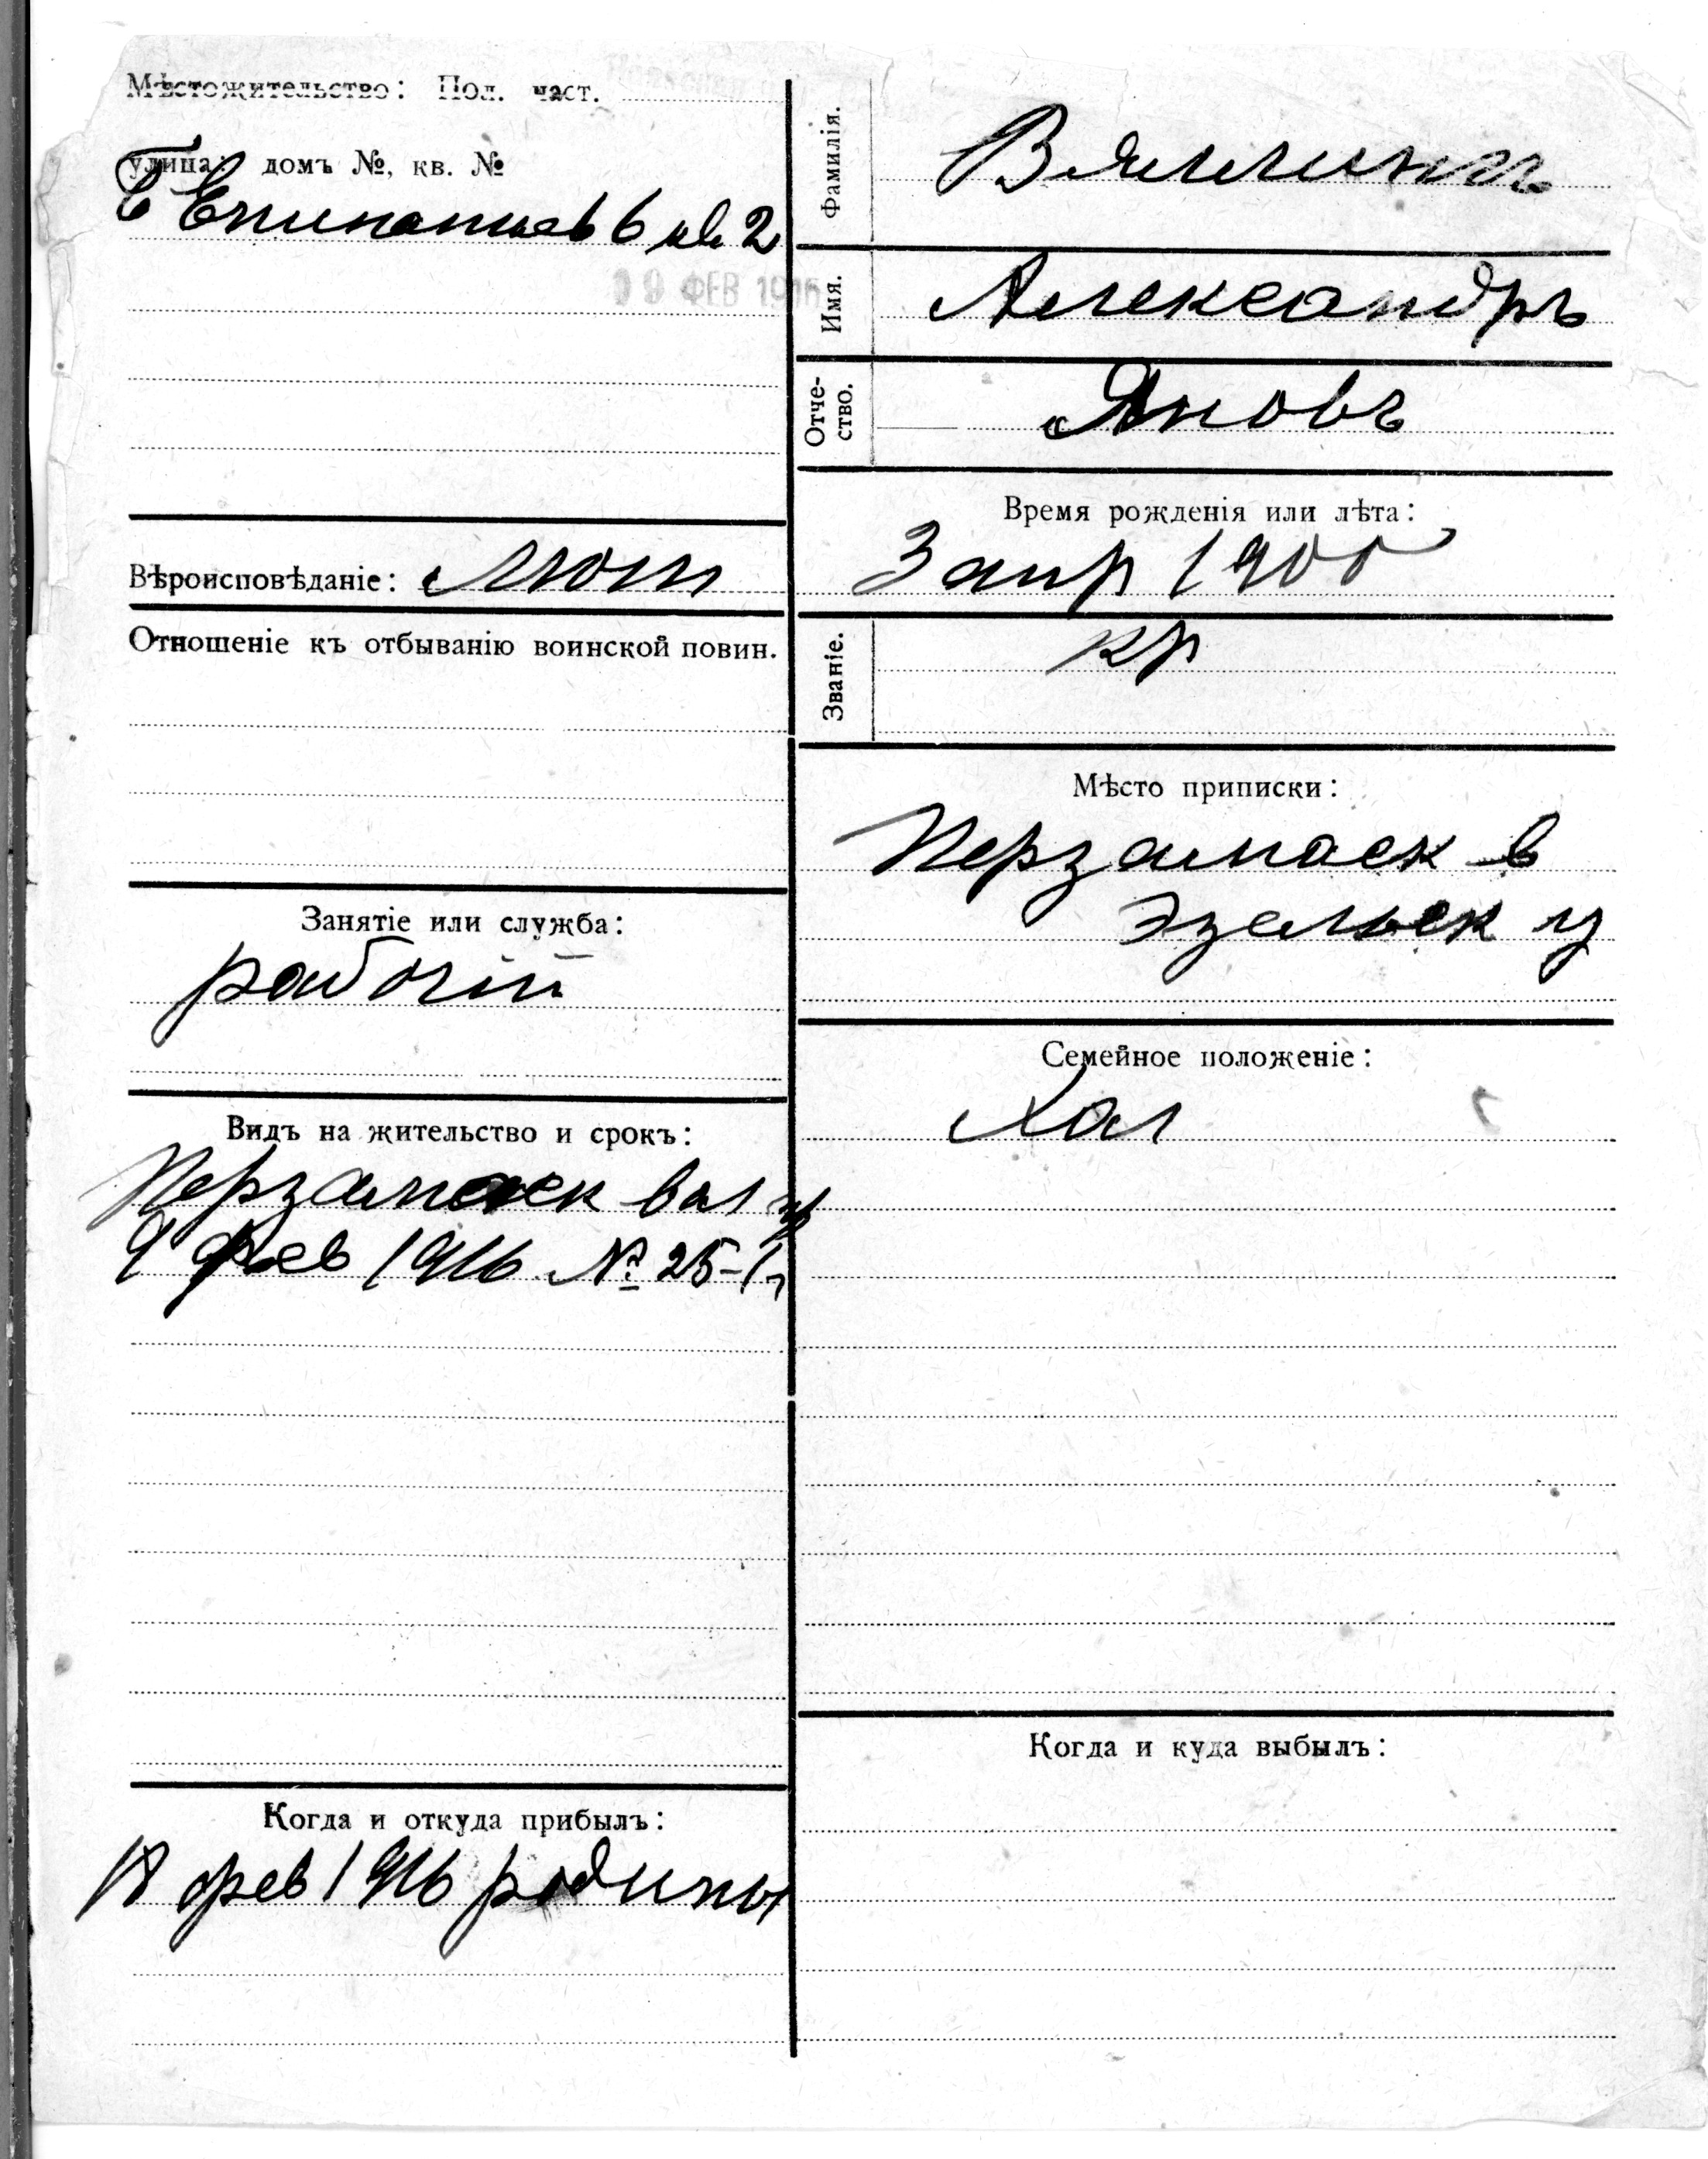 Мѣстожительство: Пол. част.
улица: домъ №, кв. №
Б Епинатьев 6 кв 2
9 ФЕВ 1916
Вѣроисповѣданіе: лют
Отношеніе къ отбыванію воинской повин.
Занятіе или служба:
рабочій
Видъ на жительство и срокъ:
Перзамаск вол пр
9 фев 1916 № 25-1 г
Когда и откуда прибылъ:
18 фев 1916 родины
Фамилія.
Имя.
Александръ
Отче-
ство.
Яновъ
Время рожденія или лѣта:
3 апр 1900
Званіе.
кр
Мѣсто приписки:
Перзамаск в
Эзельск у
Семейное положеніе:
Хол
Когда и куда выбылъ: